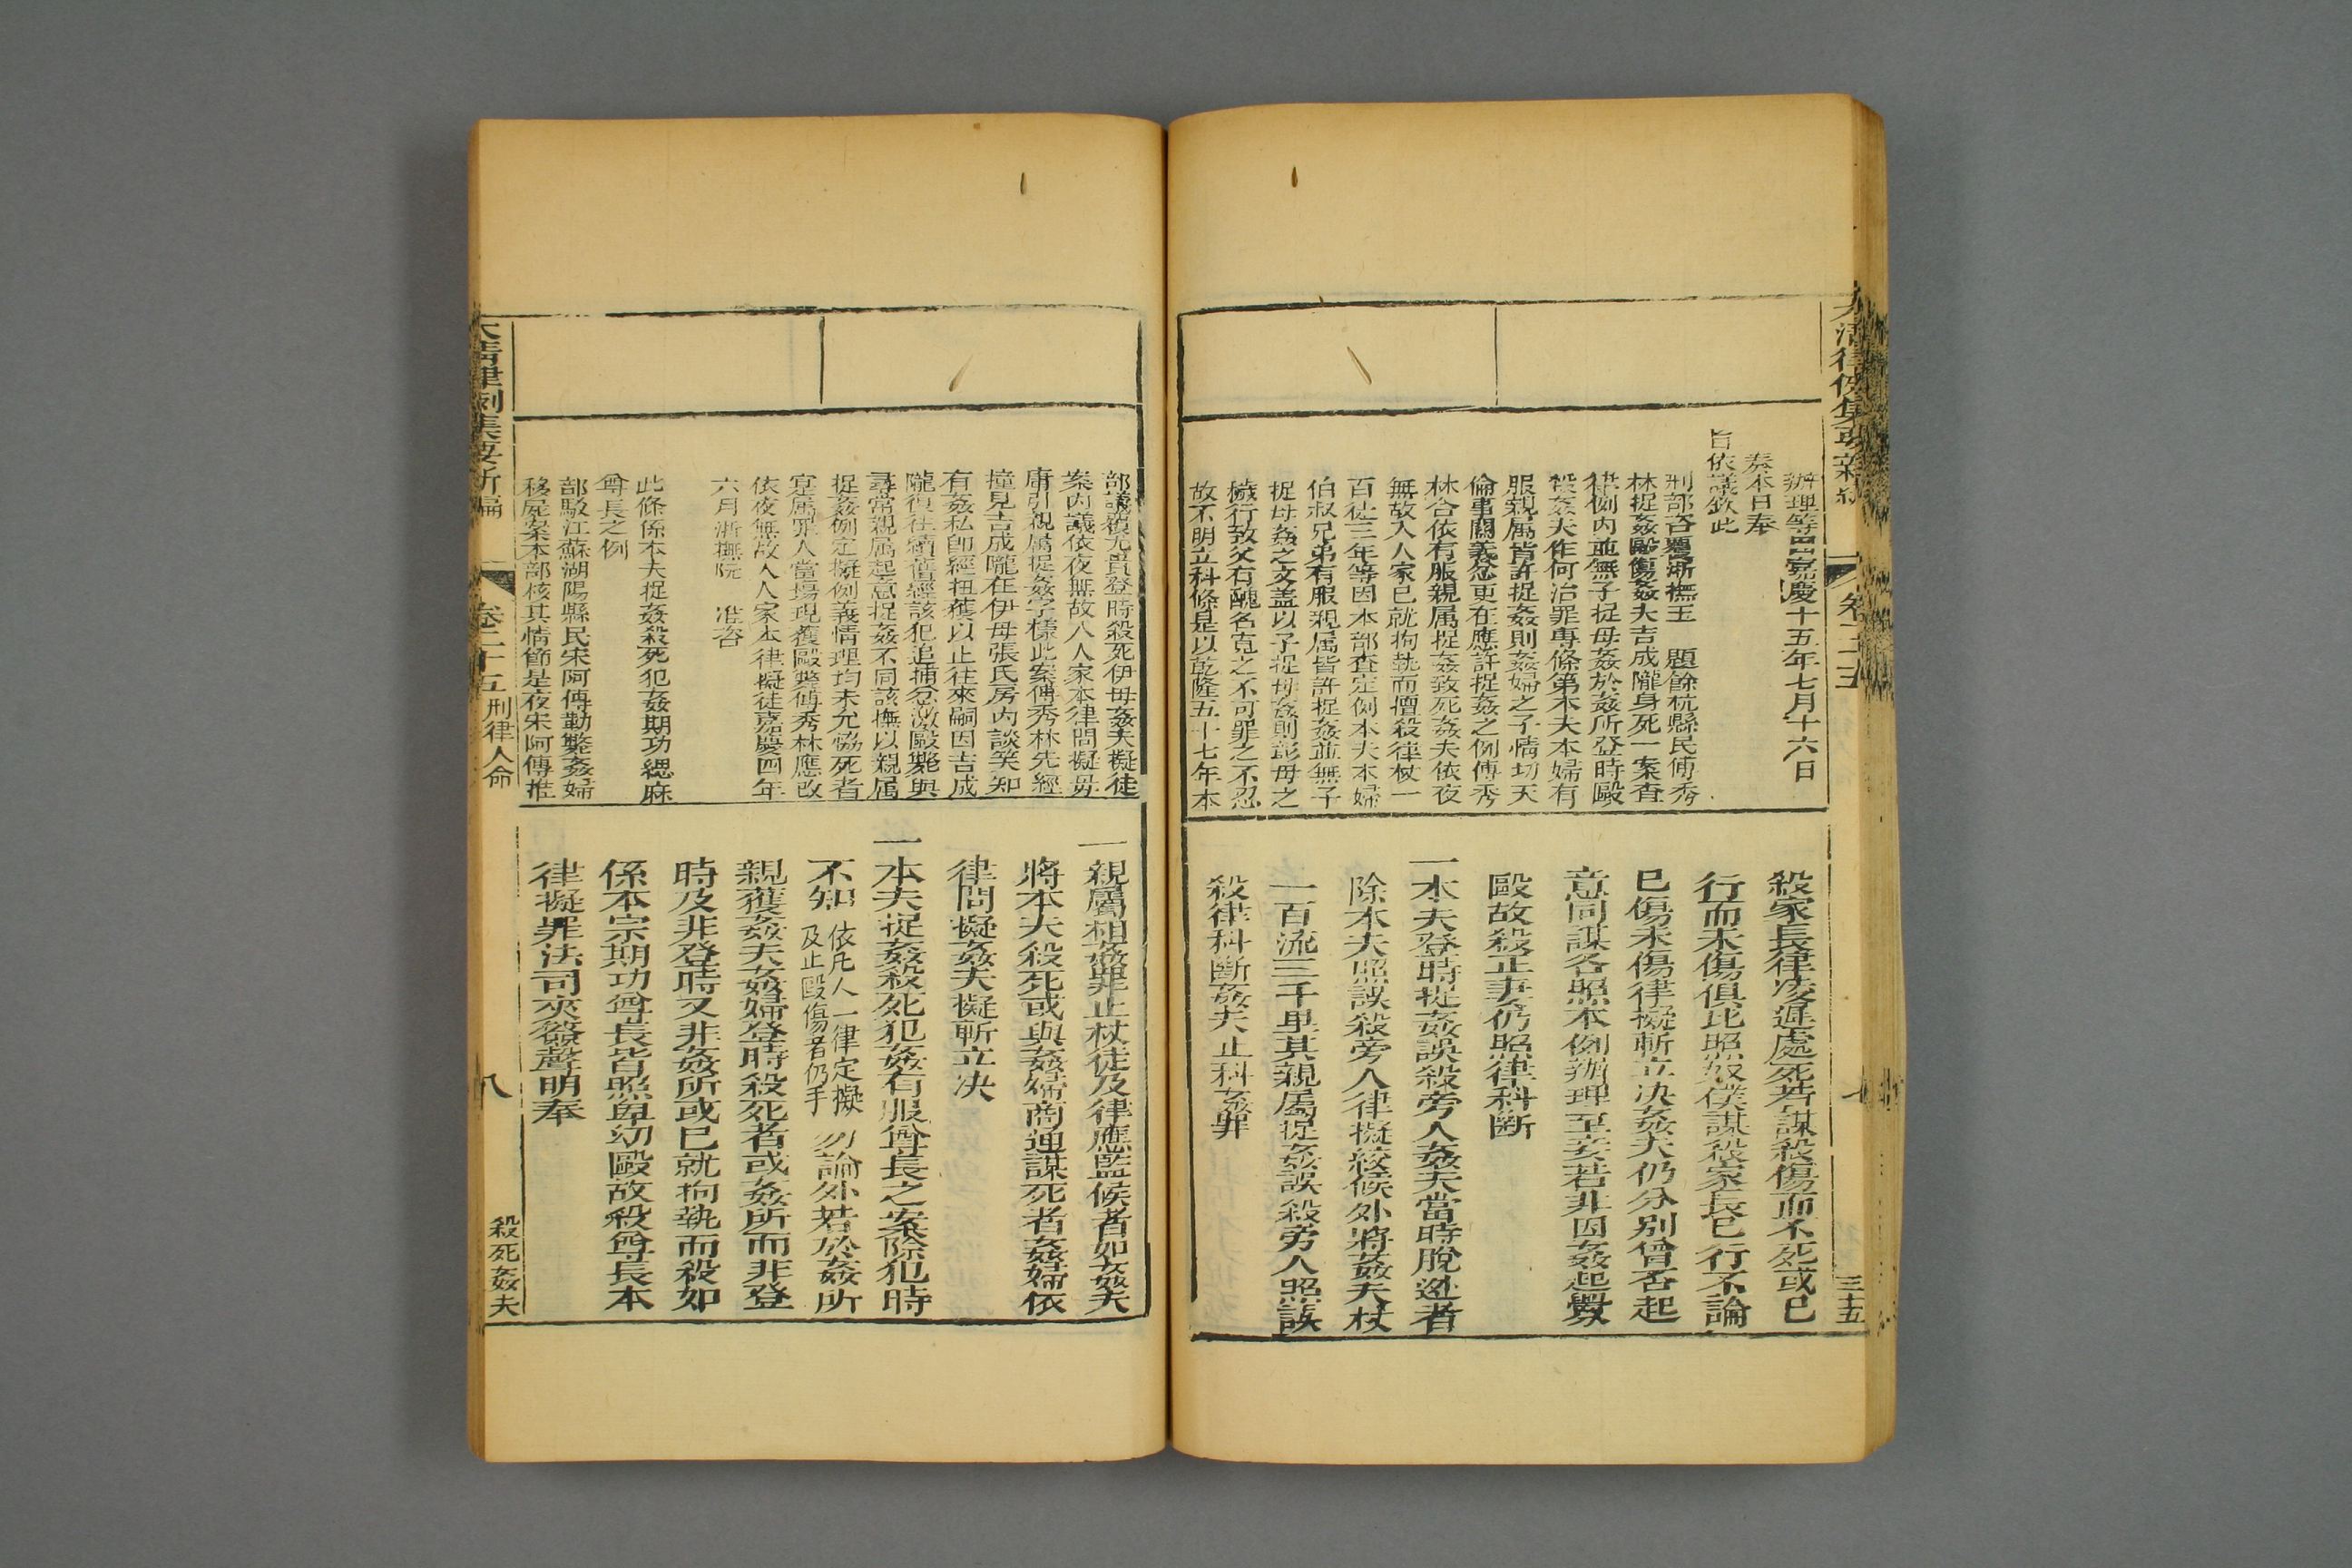 大清律例集要新編
卷二十五
辦理等因嘉慶十五年七月十六日
奏本日奉
旨依議欽此
刑部咨覆浙撫王 題餘杭縣民傅秀
林捉姦毆傷姦夫吉成隴身死一案查
律例內並無子捉母姦於姦所登時毆
殺姦夫作何治罪專條第本夫本婦有
服親屬皆許捉姦則姦婦之子情切天
倫事關義忿更在應許捉姦之例傅秀
林合依有服親屬捉姦致死姦夫依夜
無故入人家已就拘執而擅殺律杖一
百徒三年等因本部查定例本夫本婦
伯叔兄弟有服親屬皆許捉姦並無子
捉母姦之文蓋以子捉母姦則彰母之
穢行致父有醜名寬之不可罪之不忍
故不明立科條是以乾隆五十七年本
殺家長律凌遲處死若謀殺傷而不死或已
行而未傷俱比照奴僕謀殺家長已行不論
已傷未傷律擬斬立決姦夫仍分別曾否起
意同謀各照本例辦理至妾若非因姦起釁
毆故殺正妻仍照律科斷
一本夫登時捉姦誤殺旁人姦夫當時脫逃者
除本夫照誤殺旁人律擬絞候外將姦夫杖
一百流三千里其親屬捉姦誤殺旁人照該
殺律科斷姦夫止科姦罪
七
三十五
部議覆尤貢登時殺死伊母姦夫擬徒
案內議依夜無故入人家本律問擬毋
庸引親屬捉姦字樣此案傅秀林先經
撞見吉成隴在伊母張氏房內談笑知
有姦私卽經扭獲以止往來嗣因吉成
隴復往續舊經該犯追捕忿激毆斃與
尋常親屬起意捉姦不同該撫以親屬
捉姦例定擬例義情理均未允協死者
寔屬罪人當場現獲毆斃傅秀林應改
依夜無故入人家本律擬徒嘉慶四年
六月浙撫阮 准咨
此條係本夫捉姦殺死犯姦期功緦麻
尊長之例
部駁江蘇湖陽縣民宋阿傳勒斃姦婦
移屍案本部核其情節是夜宋阿傳推
一親屬相姦罪止杖徒及律應監候者如姦夫
將本夫殺死或與姦婦商通謀死者姦婦依
律問擬姦夫擬斬立決
一本夫捉姦殺死犯姦有服尊長之案除犯時
不知依凡人一律定擬及止毆傷者仍予勿論外若於姦所
親獲姦夫姦婦登時殺死者或姦所而非登
時及非登時又非姦所或已就拘執而殺如
係本宗期功尊長皆照卑幼毆故殺尊長本
律擬罪法司夾簽聲明奉
大清律例集要新編
卷二十五 刑律人命
八
殺死姦夫